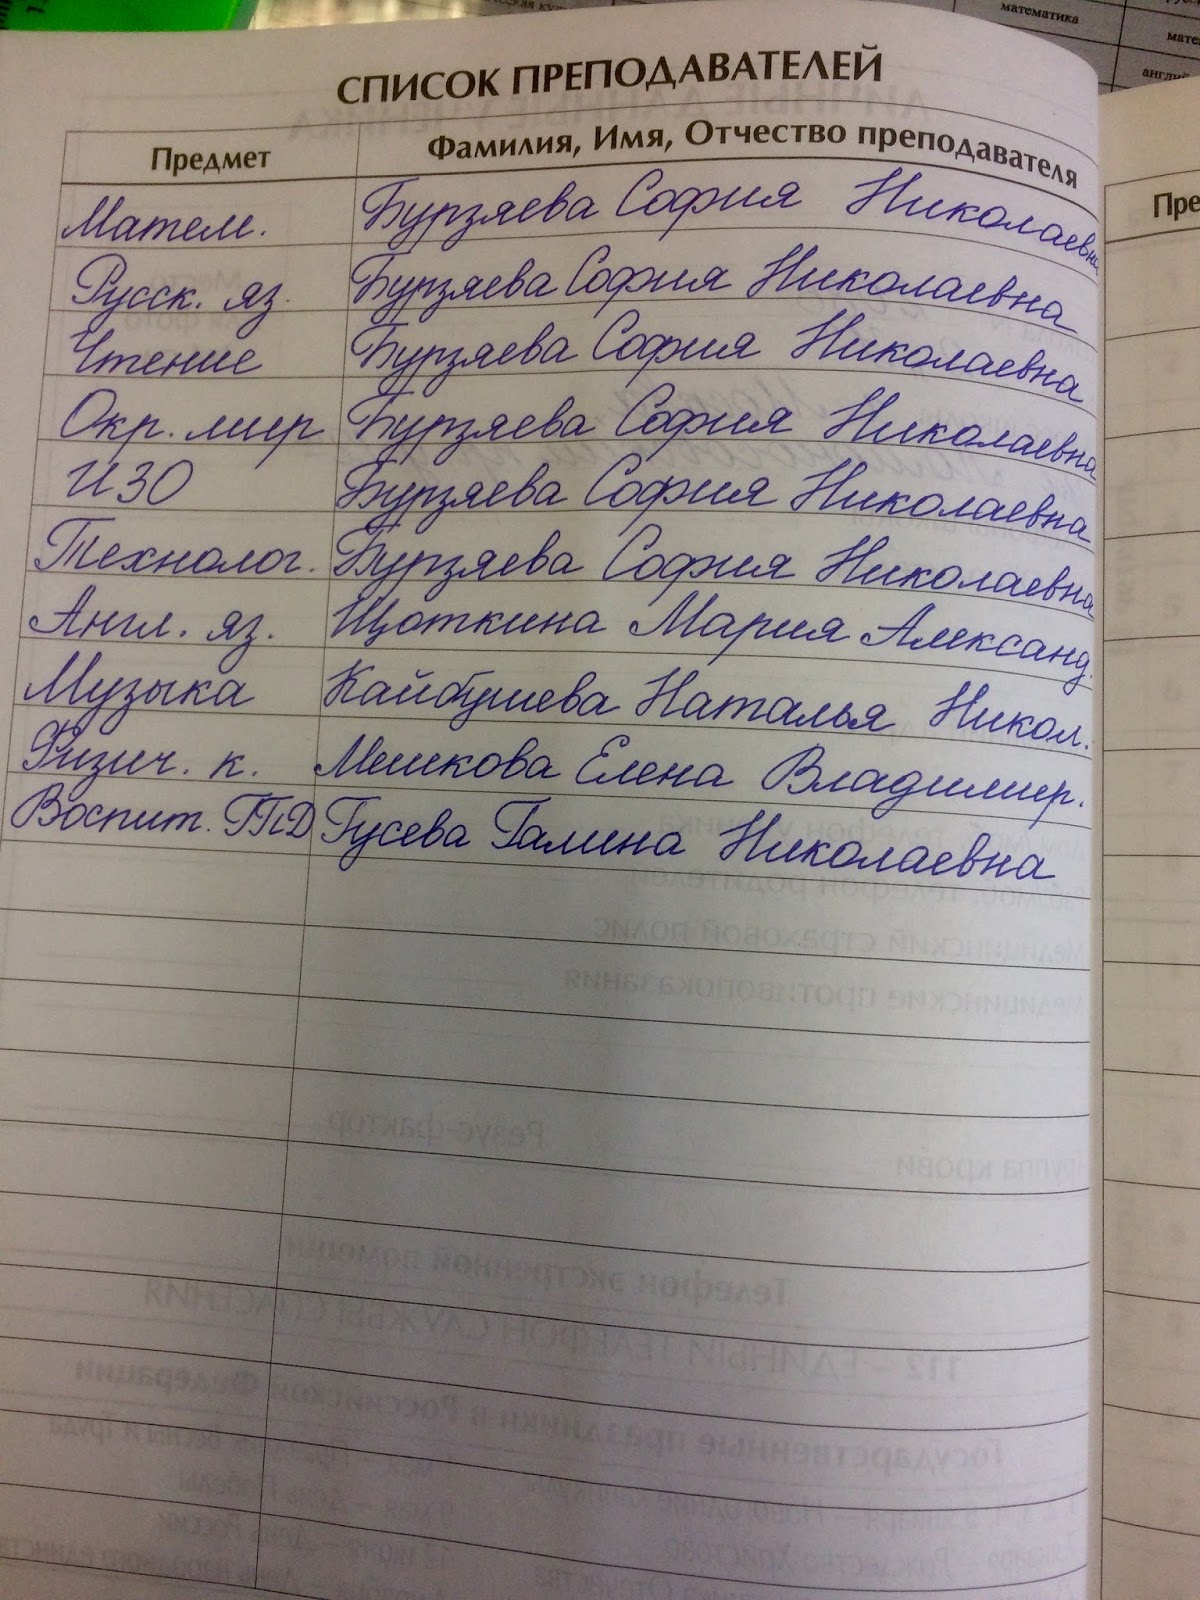 математика
СПИСОК ПРЕПОДАВАТЕЛЕЙ
Предмет Фамилия, Имя, Отчество преподавателя
Матем. Бурзяева София Николаевна
Русск. яз. Бурзяева София Николаевна
Чтение Бурзяева София Николаевна
Окр. мир Бурзяева София Николаевна
ИЗО Бурзяева София Николаевна
Технолог. Бурзяева София Николаевна
Англ. яз. Щоткина Мария Александ.
Музыка Кайбушева Наталья Никол.
Физич. к. Мешкова Елена Владимир.
Воспит. ГПД Гусева Галина Николаевна
Пре